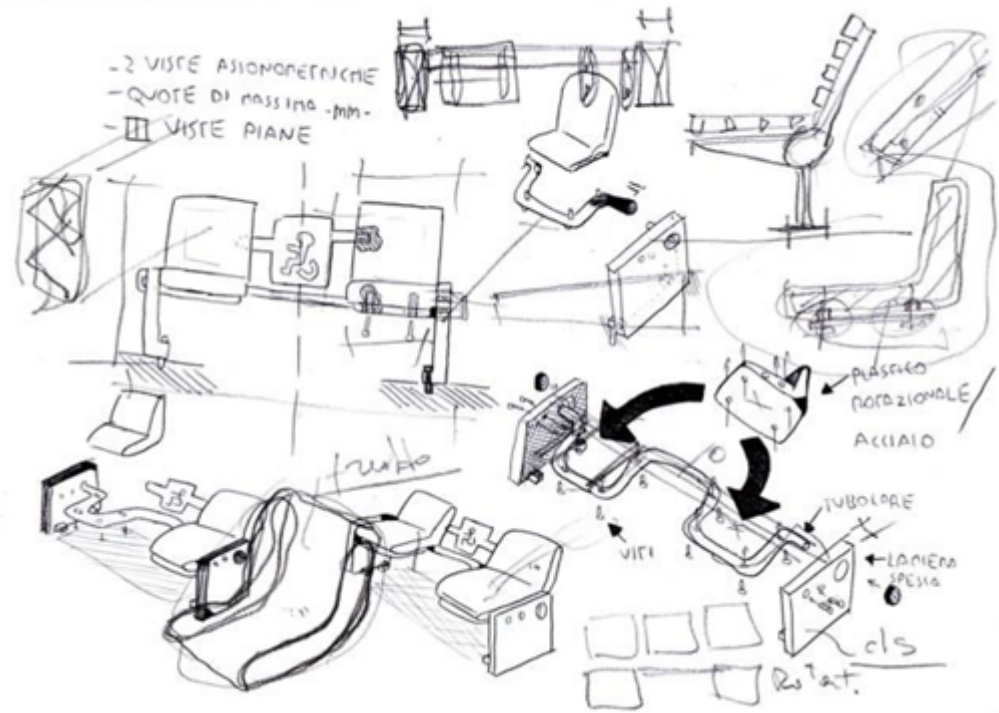 - 2 VISTE ASSONOMETRICHE
- QUOTE DI MASSIMA -MM-
- VISTE PIANE
PLASTICO
ROTAZIONALE /
ACCIAIO
TUBOLARE
VITI
LAMIERA
SPESSA
cls